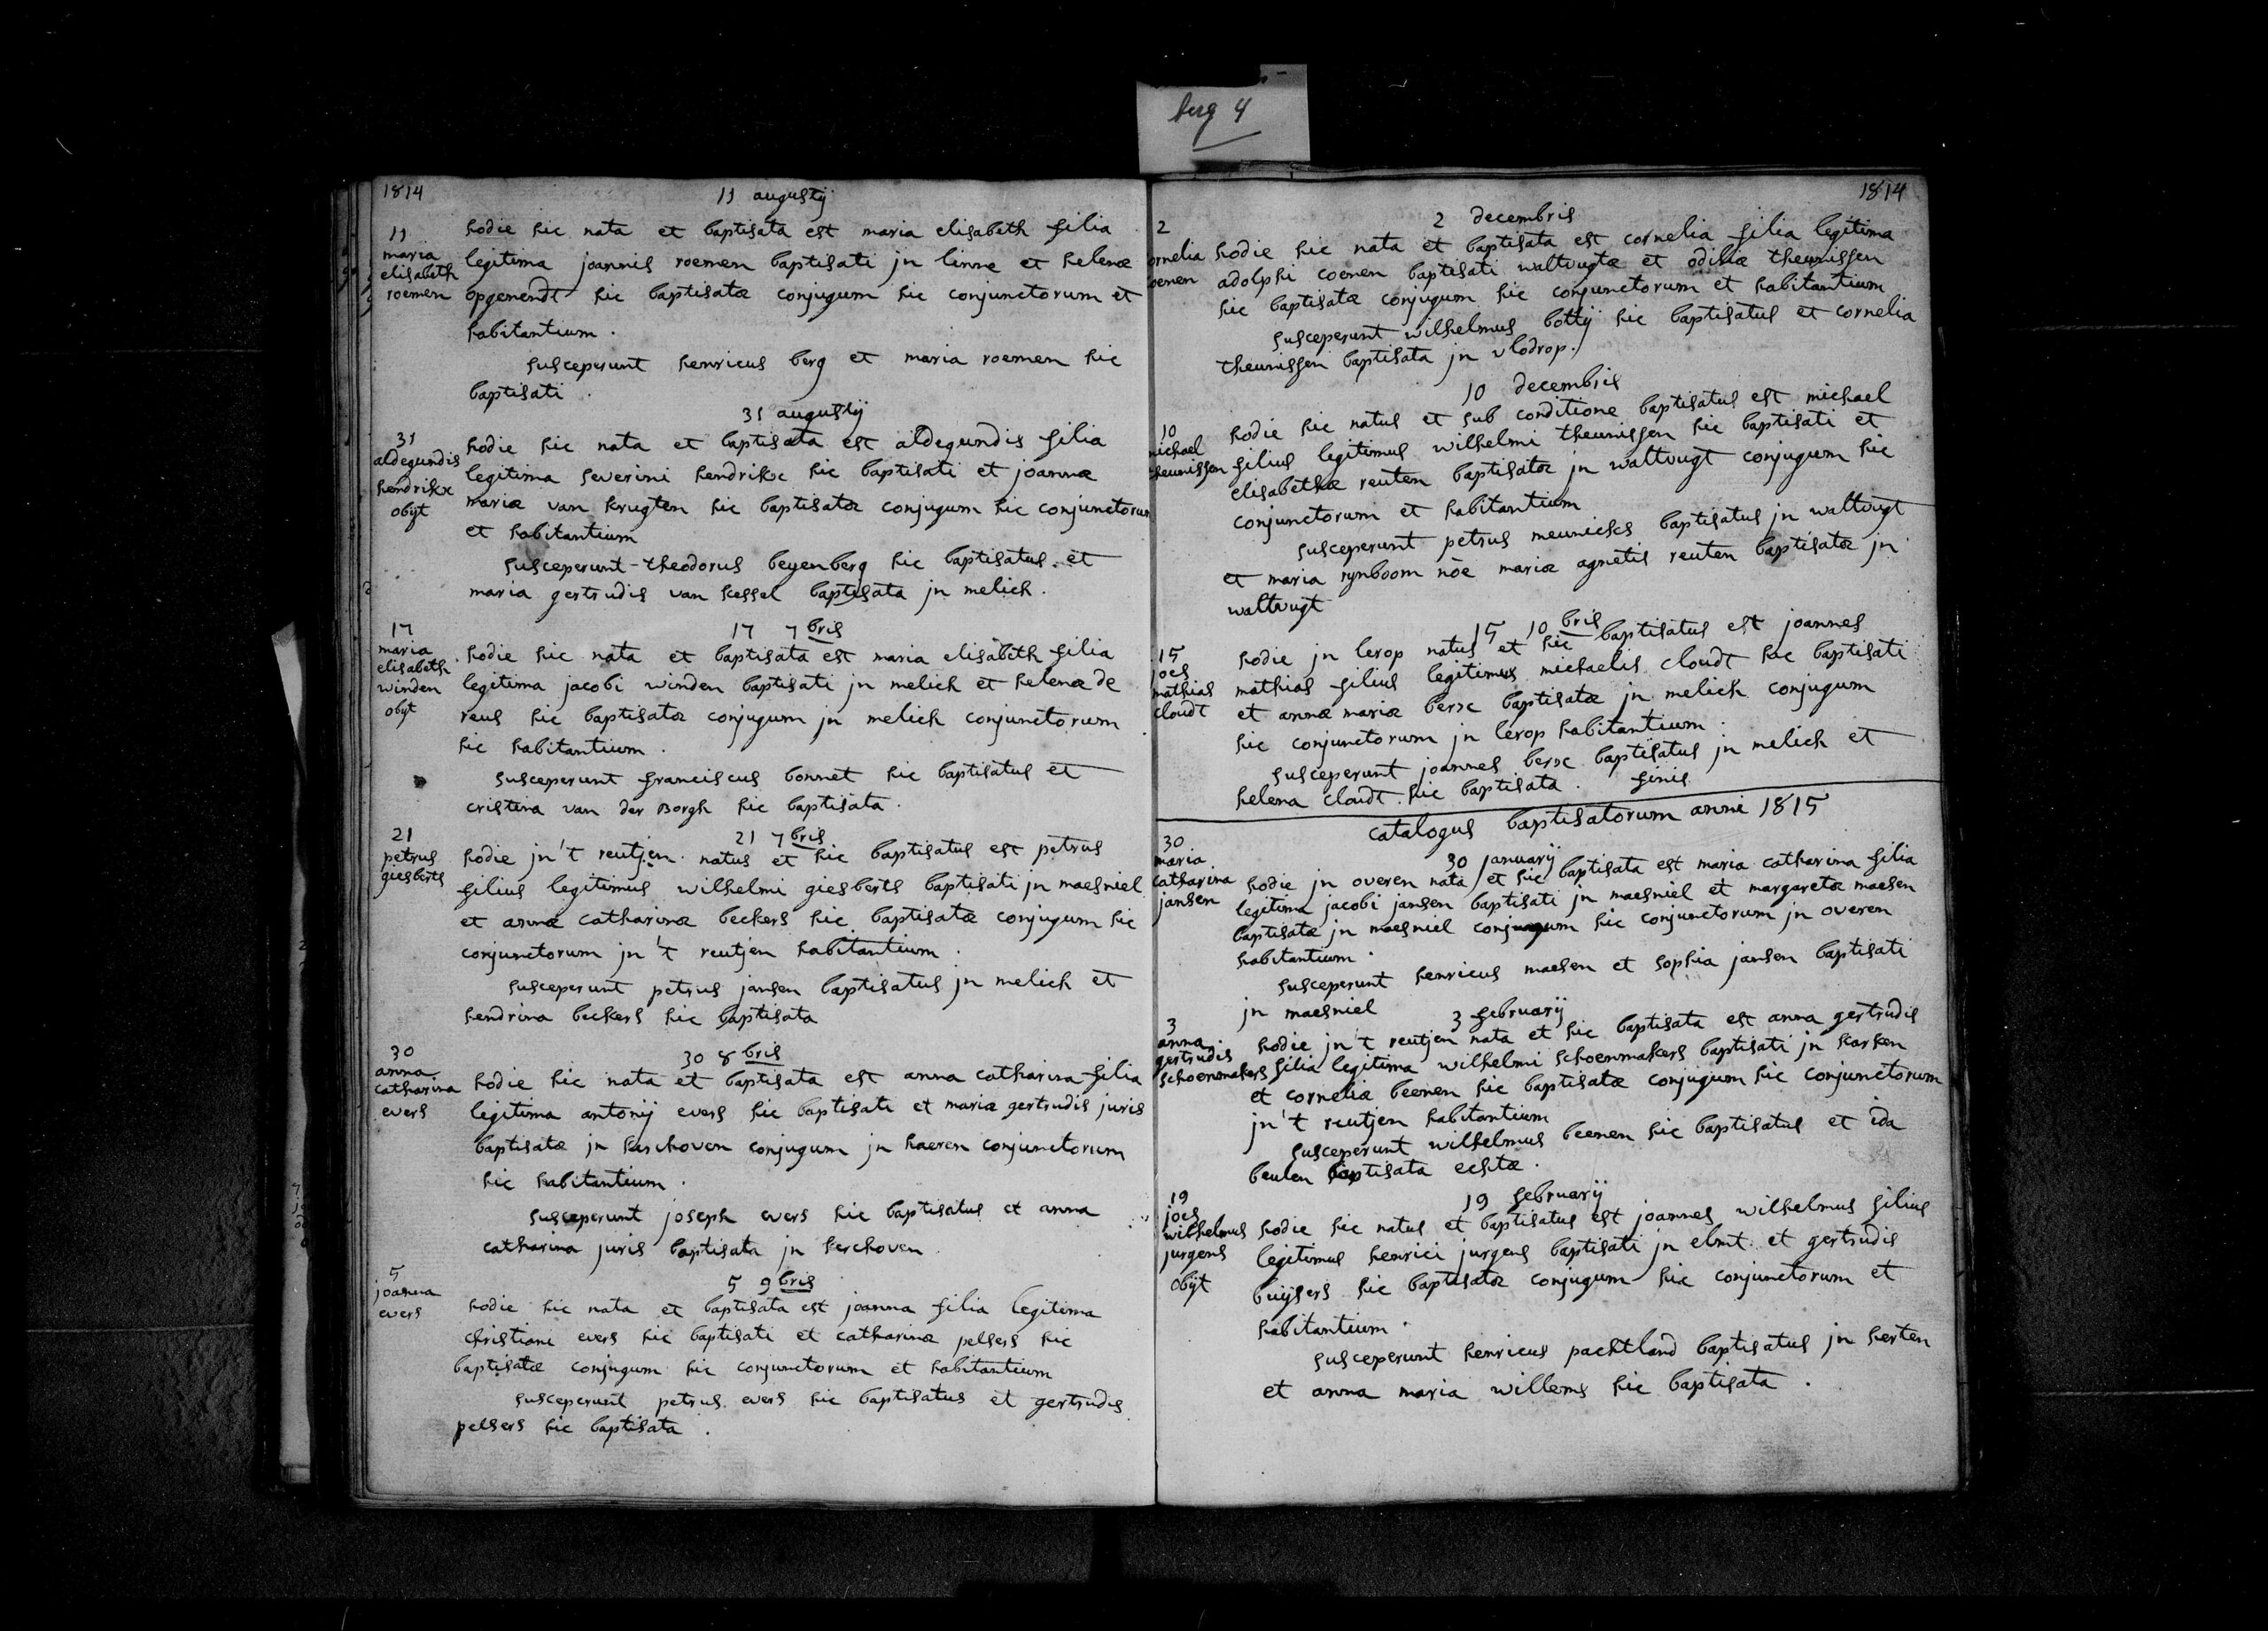 berg 4
1814
11 augustij
11
maria
elisabeth
roemen
hodie hic nata et baptisata est maria elisabeth filia
legitima joannis roemen baptisati jn linne et helenæ
opgenendt hic baptisatæ conjugum hic conjunctorum et
habitantium.
susceperunt henricus berg et maria roemen hic
baptisati.
31 augustij
31
aldegundis
hendrikx
obijt
hodie hic nata et baptisata est aldegundis filia
legitima severini hendrikx hic baptisati et joannæ
mariæ van krugten hic baptisatæ conjugum hic conjunctorum
et habitantium
susceperunt theodorus beyenberg hic baptisatus et
maria gertrudis van kessel baptisata jn melick.
17 7bris
17
maria
elisabeth
winden
obijt
hodie hic nata et baptisata est maria elisabeth filia
legitima jacobi winden baptisati jn melick et helenæ de
reus hic baptisatæ conjugum jn melick conjunctorum
hic habitantium.
susceperunt franciscus bonnet hic baptisatus et
cristina van der Borgh hic baptisata.
21 7bris
21
petrus
giesberts
hodie jn't reutjen natus et hic baptisatus est petrus
filius legitimus wilhelmi giesberts baptisati jn maesniel
et annæ catharinæ beckers hic baptisatæ conjugum hic
conjunctorum jn't reutjen habitantium.
susceperunt petrus jansen baptisatus jn melick et
hendrina beckers hic baptisata
30 8bris
30
anna
catharina
evers
hodie hic nata et baptisata est anna catharina filia
legitima antonij evers hic baptisati et mariæ gertrudis juris
baptisatæ jn kerchoven conjugum jn haeren conjunctorum
hic habitantium.
susceperunt joseph evers hic baptisatus et anna
catharina juris baptisata jn kerchoven
5 9bris
5
joanna
evers
hodie hic nata et baptisata est joanna filia legitima
christiani evers hic baptisati et catharinæ pelsers hic
baptisatæ conjugum hic conjunctorum et habitantium
susceperunt petrus evers hic baptisatus et gertrudis
pelsers hic baptisata.
1814
2 decembris
2
ornelia
oenen
hodie hic nata et baptisata est cornelia filia legitima
adolphi coenen baptisati waltvugtæ et odiliæ theunissen
hic baptisatæ conjugum hic conjunctorum et habitantium
susceperunt wilhelmus bottij hic baptisatus et cornelia
theunissen baptisata jn vlodrop.
10 decembris
10
michael
theunissen
hodie hic natus et sub conditione baptisatus est michael
filius legitimus wilhelmi theunissen hic baptisati et
elisabethæ reuten baptisatæ jn waltvugt conjugum hic
conjunctorum et habitantium
susceperunt petrus meuniesses baptisatus jn waltvugt
et maria rynboom nõe mariæ agnetis reuten baptisatæ jn
waltvugt
15 10bris
15
joes
mathias
cloudt
hodie jn lerop natus et hic baptisatus est joannes
mathias filius legitimus michaelis cloudt hic baptisati
et annæ mariæ berx baptisatæ jn melick conjugum
hic conjunctorum jn lerop habitantium.
susceperunt joannes berx baptisatus jn melick et
helena cloudt hic baptisata. finis
catalogus baptisatorum anni 1815
30 januarij
30
maria
catharina
jansen
hodie jn overen nata et hic baptisata est maria catharina filia
legitima jacobi jansen baptisati jn maesniel et margaretæ maesen
baptisatæ jn maesniel conjugum hic conjunctorum jn overen
habitantium.
susceperunt henricus maesen et sophia jansen baptisati
jn maesniel
3 februarij
3
anna
gertrudis
schoenmakers
hodie jn't reutjen nata et hic baptisata est anna gertrudis
filia legitima wilhelmi schoenmakers baptisati jn karken
et corneliæ beenen hic baptisatæ conjugum hic conjunctorum
jn't reutjen habitantium
susceperunt wilhelmus beenen hic baptisatus et ida
beulen baptisata echtæ.
19 februarij
19
joes
wilhelmus
jurgens
obijt
hodie hic natus et baptisatus est joannes wilhelmus filius
legitimus henrici jurgens baptisati jn elmt et gertrudis
buijsers hic baptisatæ conjugum hic conjunctorum et
habitantium.
susceperunt henricus pachtland baptisatus jn herten
et anna maria willems hic baptisata.